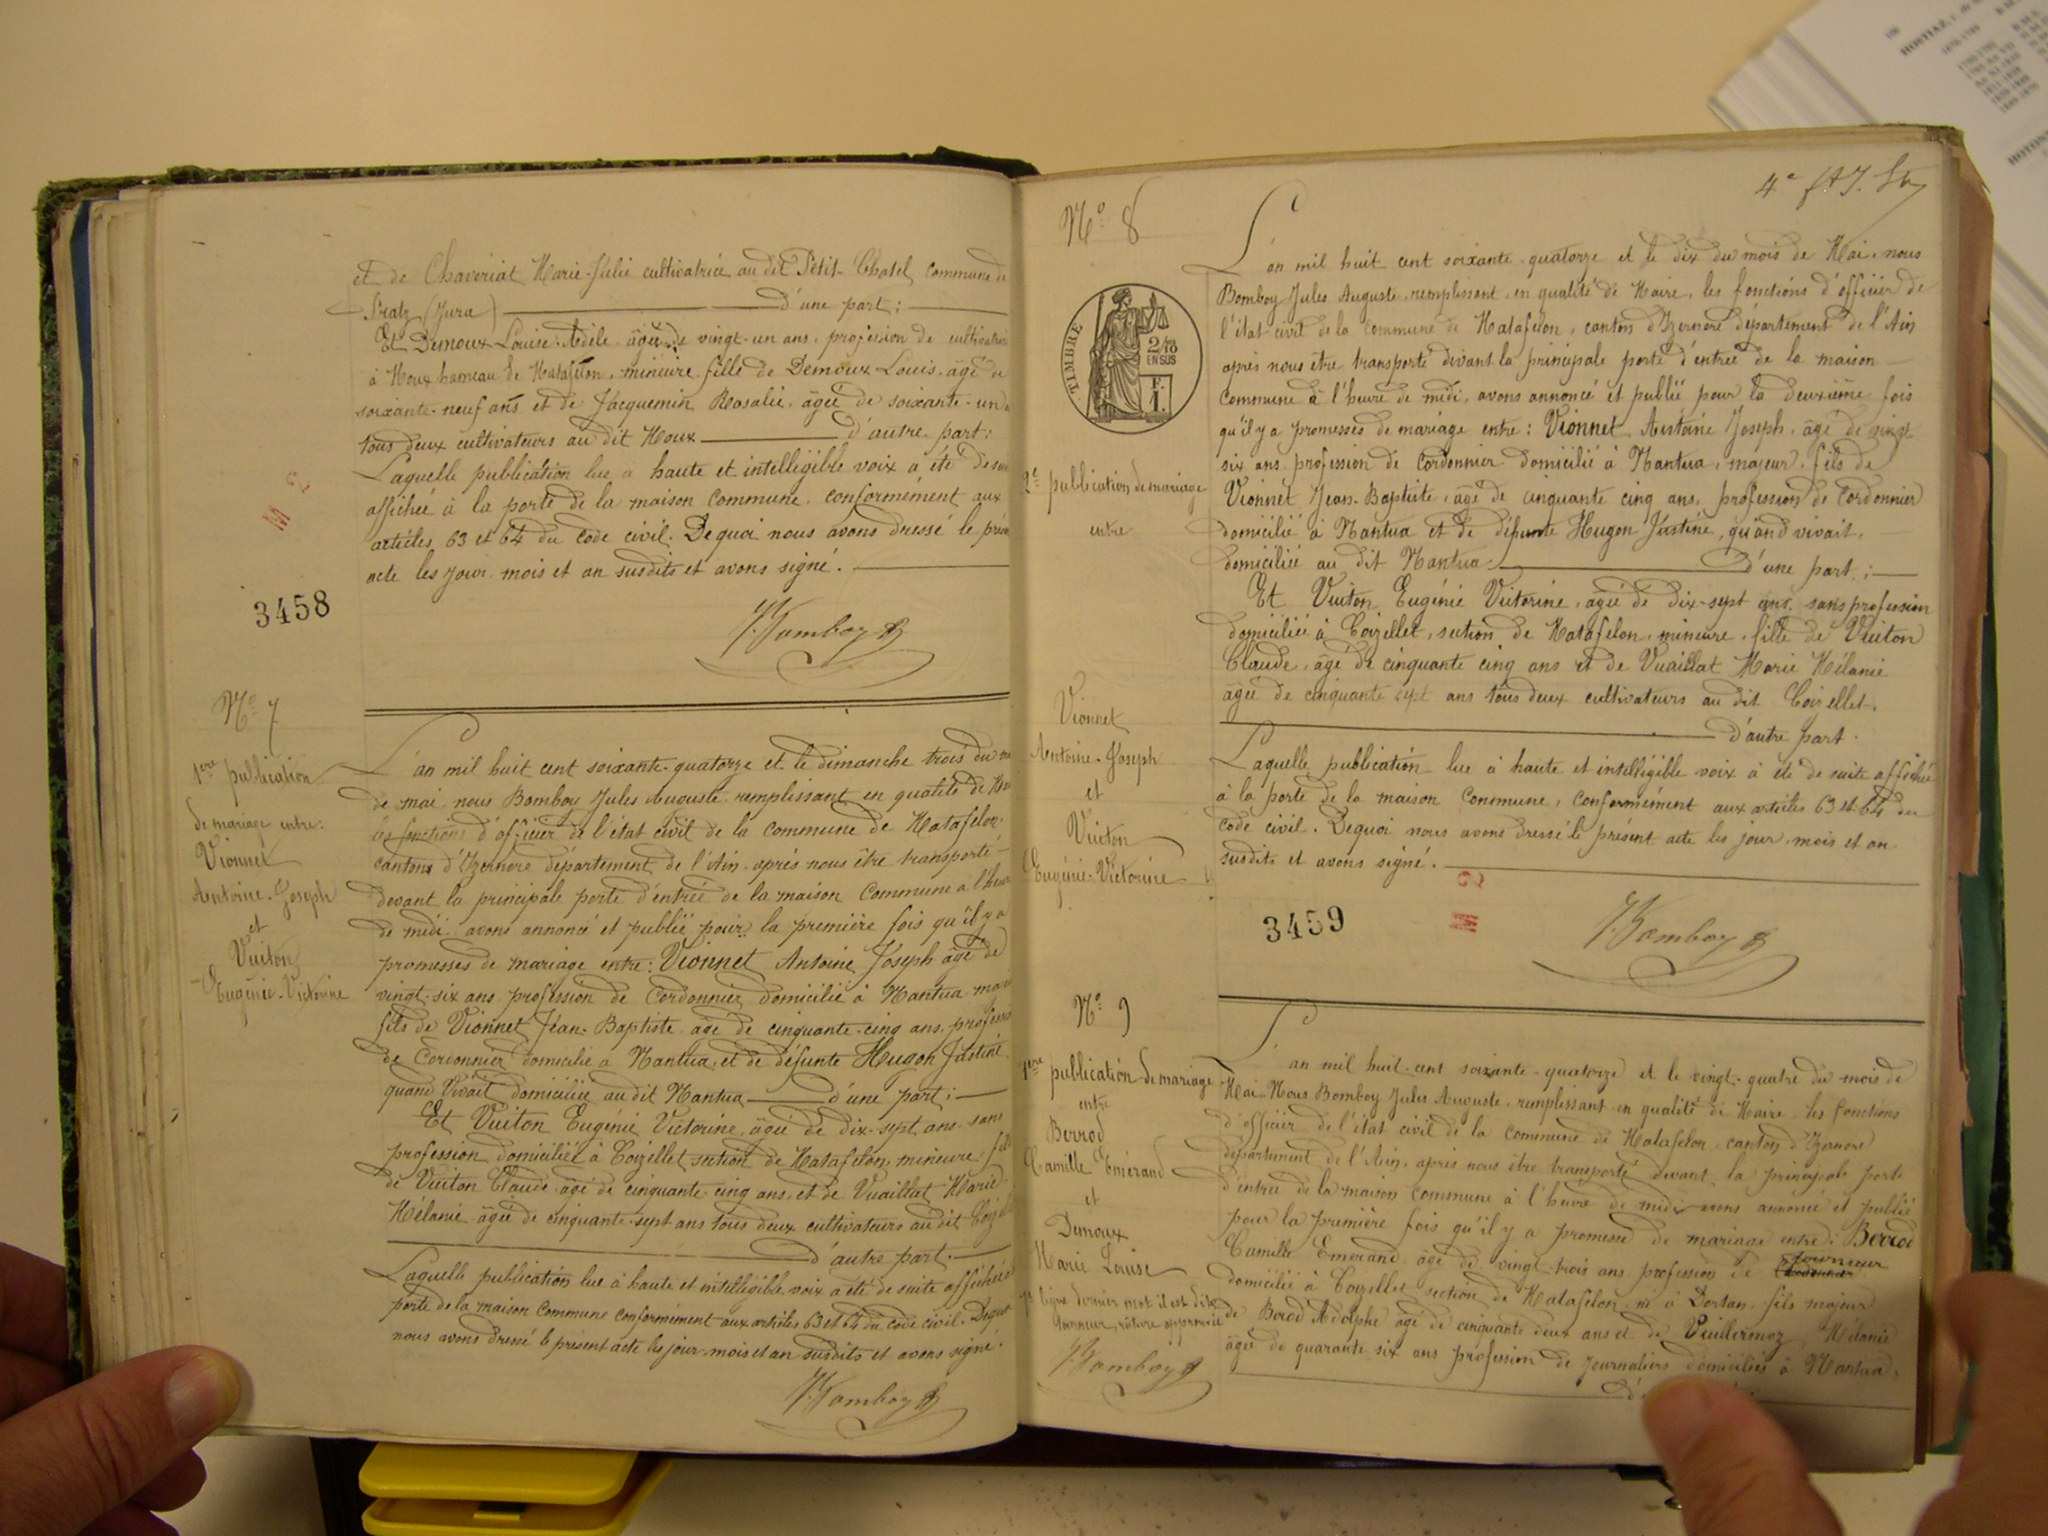 et de Chaveriat Marie-Julie cultivatrice au dit Petit-Chatel commune de
Pratz (Jura) d'une part;
Et Demoux Louise Adèle âgée de vingt-un ans, profession de cultivatrice
à Moux hameau de Matafelon, mineure fille de Demoux Louis âgé de
soixante-neuf ans et de Jacquemin Rosalie, âgée de soixante-un
tous deux cultivateurs au dit Moux d'autre part;
Laquelle publication lue à haute et intelligible voix a été de suite
affichée à la porte de la maison commune, conformément aux
articles 63 et 64 du code civil. De quoi nous avons dressé le
acte les jour, mois et an susdits et avons signé.
3458
J. Bomboy
Nº 7
1ère publication
de mariage entre:
Vionnet
Antoine-Joseph
et
Vuiton
Eugénie-Victorine
L'an mil huit cent soixante-quatorze et le dimanche trois du
de mai nous Bomboy Jules Auguste remplissant en qualité de
les fonctions d'officier de l'état civil de la commune de Matafelon
cantons d'Izernore département de l'Ain après nous être transporté
devant la principale porte d'entrée de la maison commune à l'heure
de midi avons annoncé et publié pour la première fois qu'il y a
promesses de mariage entre: Vionnet Antoine Joseph âgé de
vingt-six ans profession de Cordonnier domicilié à Nantua
fils de Vionnet Jean-Baptiste âgé de cinquante-cinq ans, profession
de Cordonnier domicilié à Nantua, et de défunte Hugon Justine
quand vivait domiciliée au dit Nantua d'une part;
Et Vuiton Eugénie Victorine, âgée de dix-sept ans sans
profession domiciliée à Coizellet section de Matafelon, mineure fille
de Vuiton Claude âgé de cinquante cinq ans, et de Vuaillat Marie
Mélanie âgée de cinquante-sept ans tous deux cultivateurs au dit
d'autre part.
Laquelle publication lue à haute et intelligible voix a été de suite affichée
porte de la maison commune conformément aux articles 63 et 64 du code civil. De quoi
nous avons dressé le présent acte les jour mois et an susdits et avons signé.
J. Bomboy
Nº 8
TIMBRE
2/10
EN SUS
2e publication de mariage
entre
Vionnet
Antoine-Joseph
et
Vuiton
Eugénie-Victorine
L'an mil huit cent soixante-quatorze et le dix du mois de Mai, nous
Bomboy Jules Auguste, remplissant en qualité de Maire, les fonctions d'officier de
l'état civil de la commune de Matafelon, canton d'Izernore département de l'Ain
après nous être transporté devant la principale porte d'entrée de la maison
commune à l'heure de midi, avons annoncé et publié pour la deuxième fois
qu'il y a promesses de mariage entre: Vionnet Antoine Joseph, âgé de vingt
six ans profession de Cordonnier domicilié à Nantua, majeur, fils de
Vionnet Jean-Baptiste, âgé de cinquante cinq ans, profession de Cordonnier
domicilié à Nantua et de défunte Hugon Justine, quand vivait,
domiciliée au dit Nantua d'une part;
Et Vuiton Eugénie Victorine, âgée de dix-sept ans, sans profession
domiciliée à Coizellet, section de Matafelon, mineure, fille de Vuiton
Claude, âgé de cinquante cinq ans et de Vuaillat Marie Mélanie
âgée de cinquante sept ans tous deux cultivateurs au dit Coizellet.
d'autre part.
Laquelle publication lue à haute et intelligible voix a été de suite affichée
à la porte de la maison commune, conformément aux articles 63 et 64 du
code civil. De quoi nous avons dressé le présent acte les jour, mois et an
susdits et avons signé.
3459
J. Bomboy
Nº 9
1ère publication de mariage
entre
Berrod
Camille Emérand
et
Demoux
Marie Louise
ligne dernier mot il est dit
tourneur, rature approuvée
J. Bomboy
L'an mil huit-cent soixante-quatorze et le vingt-quatre du mois de
Mai Nous Bomboy Jules Auguste, remplissant en qualité de Maire les fonctions
d'officier de l'état civil de la commune de Matafelon canton d'Izernore
département de l'Ain, après nous être transporté devant la principale porte
d'entrée de la maison commune à l'heure de midi avons annoncé et publié
pour la première fois qu'il y a promesse de mariage entre: Berrod
Camille Emérand âgé de vingt trois ans profession de tourneur
domicilié à Coizellet section de Matafelon, né à Dortan, fils majeur
de Berod Adolphe âgé de cinquante deux ans et de Vuillermoz Mélanie
âgée de quarante-six ans profession de journaliers domiciliés à Nantua,